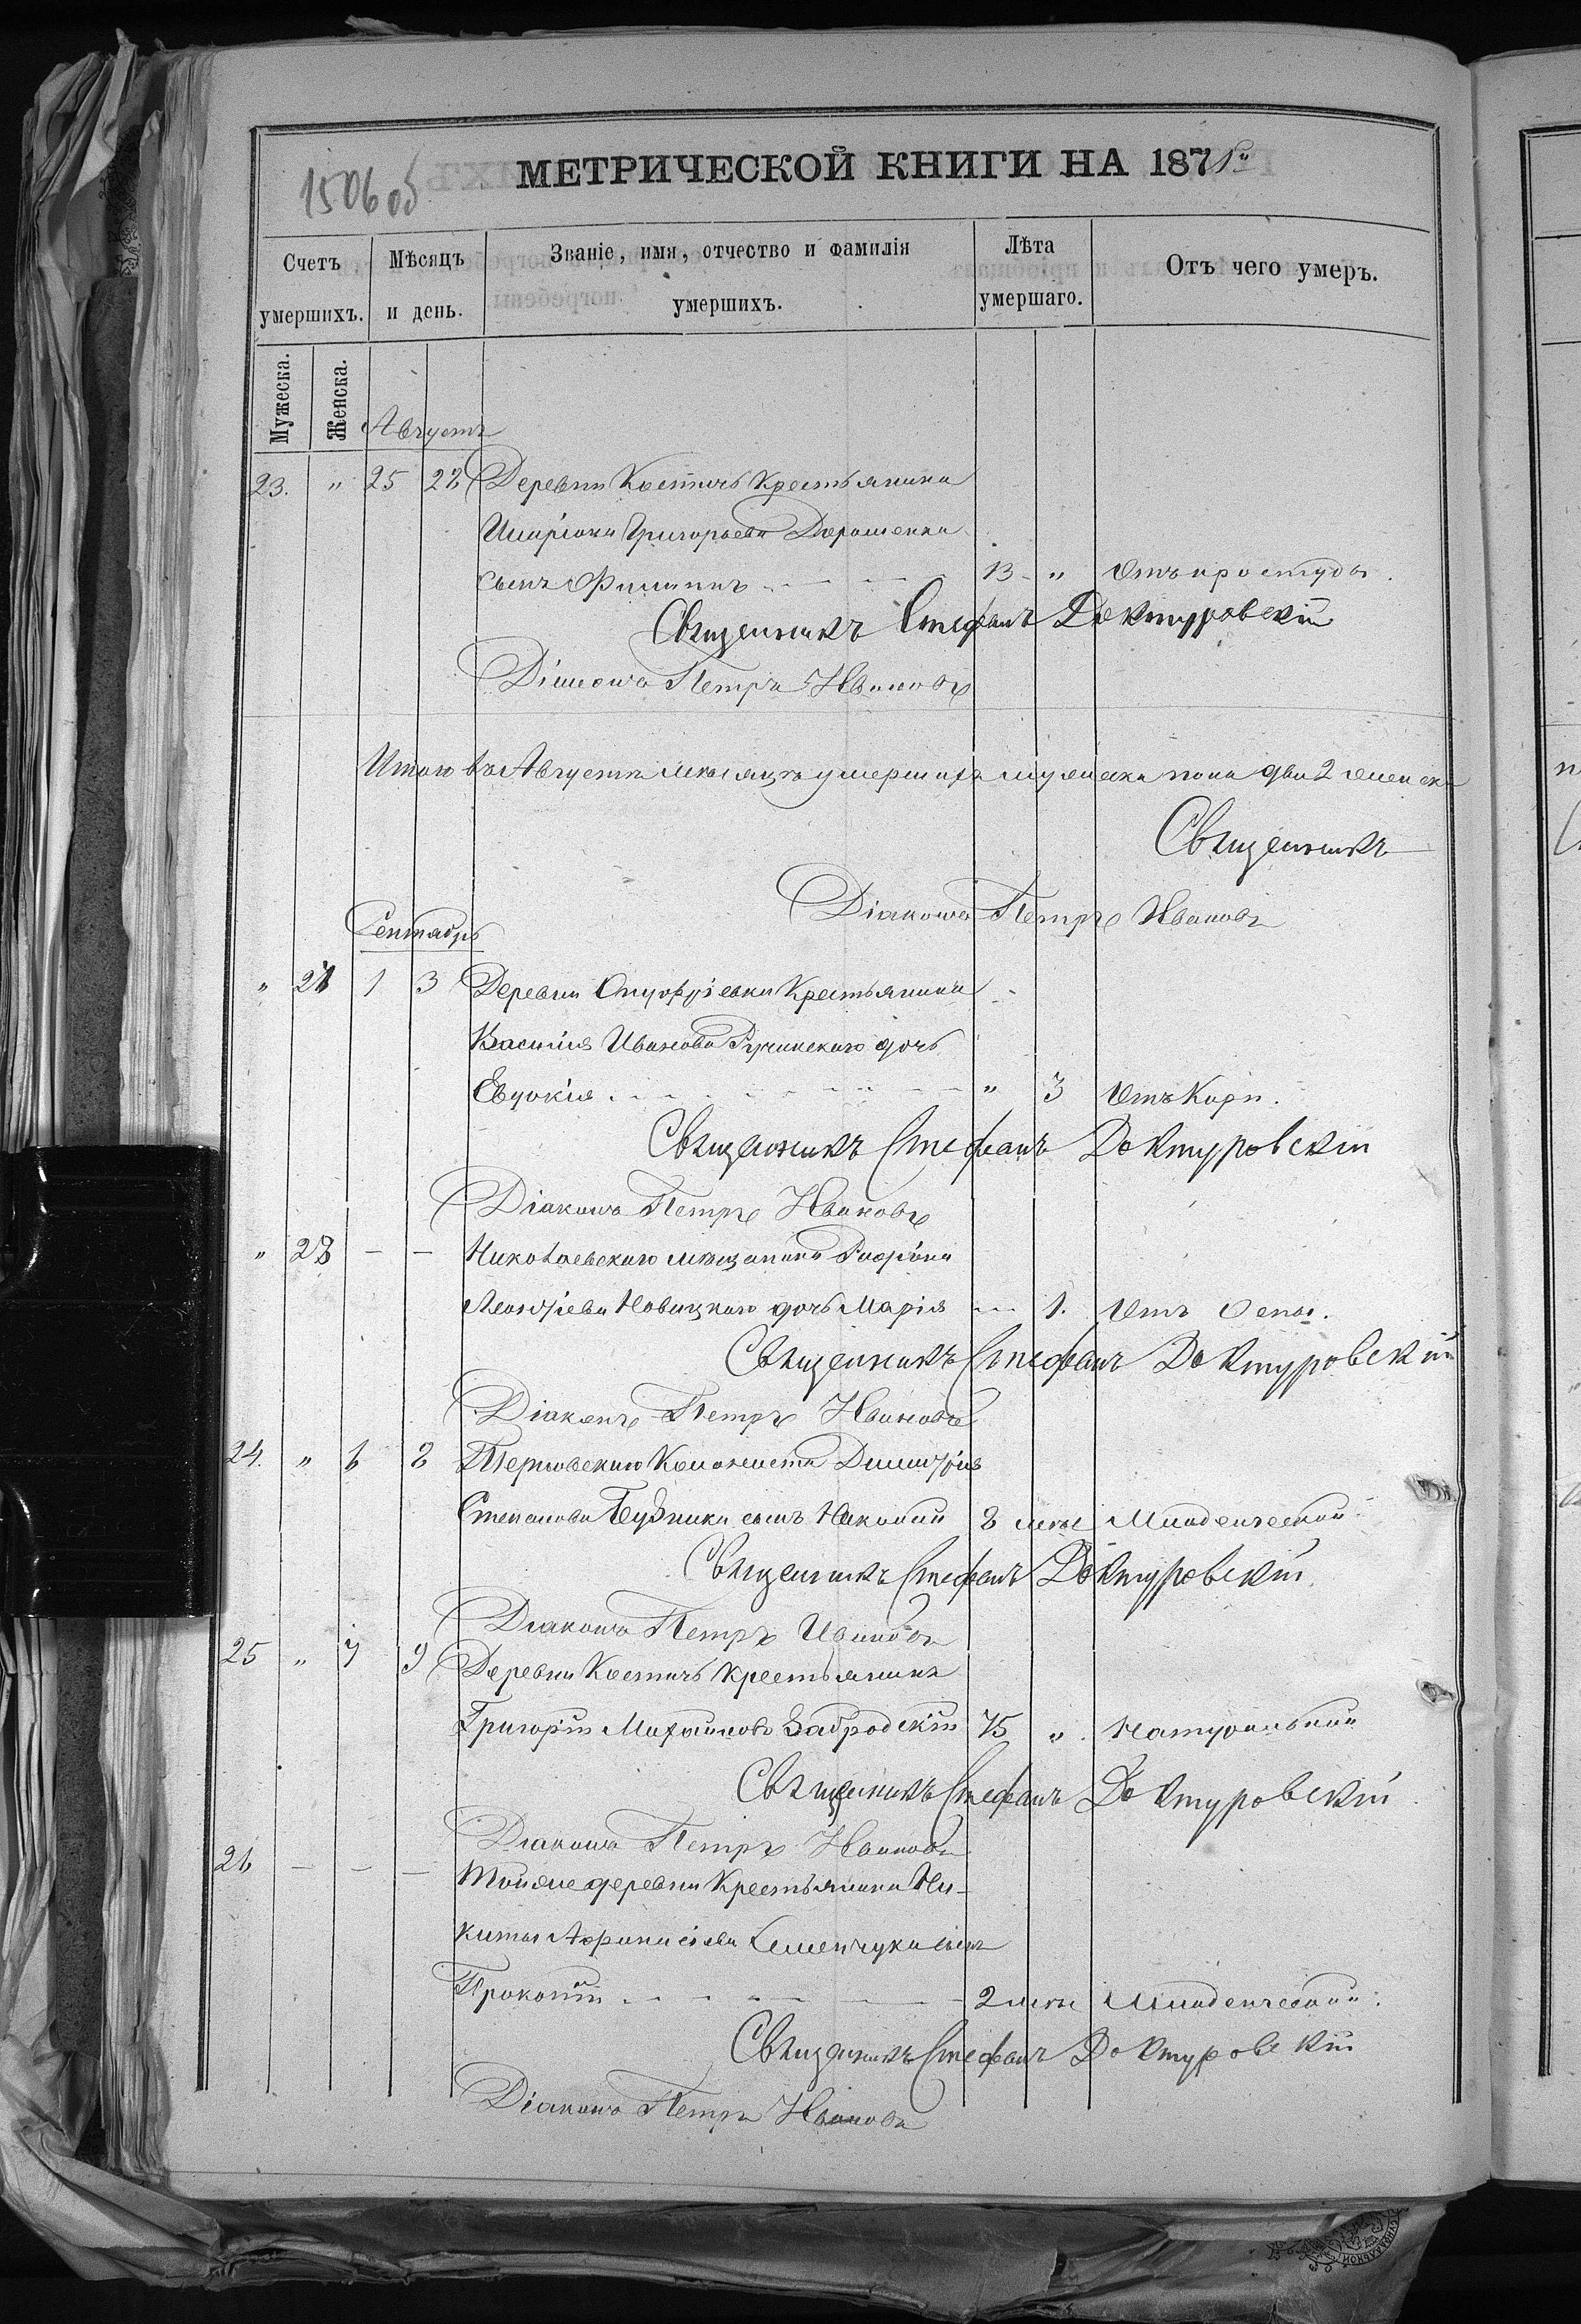 1506 об
МЕТРИЧЕСКОЙ КНИГИ НА 1871й
Счетъ умершихъ.
Мѣсяцъ и день.
Званіе, имя, отчество и фамилія умершихъ.
Лѣта умершаго.
Отъ чего умеръ.
Мужеска.
Женска.
Августъ
23. " 25 27 Деревни Костичъ Крестьянина
Иларіона Григорьева Дорошенка
сынъ Филипъ 13 " Отъ простуды.
Священникъ Стефанъ Доктуровскій
Діаконъ Петръ Ивановъ
Итого въ Августѣ мѣсяцѣ умершихъ мужеска пола два 2 женска
Священникъ
Діаконъ Петръ Ивановъ
Сентябрь
" 21 1 3 Деревни Онуфріевки Крестьянина
Василія Иванова Ручинскаго дочь
Евдокія " 3 Отъ Кори.
Священникъ Стефанъ Доктуровскій
Діаконъ Петръ Ивановъ
" 28 - - Николаевскаго мѣщанина
Леонтіева Новицкаго дочь Марія 1. Отъ Оспы.
Священникъ Стефанъ Доктуровскій
Діаконъ Петръ Ивановъ
24. " 6 8 Терновскаго Колониста Димитрія
Степанова сынъ 2 лѣтъ Младенческой
Священникъ Стефанъ Доктуровскій
Діаконъ Петръ Ивановъ
25 " 7 9 Деревни Костичъ крестьянинъ
Григорій Михайловъ Забродскій 75 " Натуральной
Священникъ Стефанъ Доктуровскій
Діаконъ Петръ Ивановъ
26 - - - Тойже деревни Крестьянина Ни-
киты Афанасіева Семенчука сынъ
Прокопій 2 лѣтъ Младенческой.
Священникъ Стефанъ Доктуровскій
Діаконъ Петръ Ивановъ